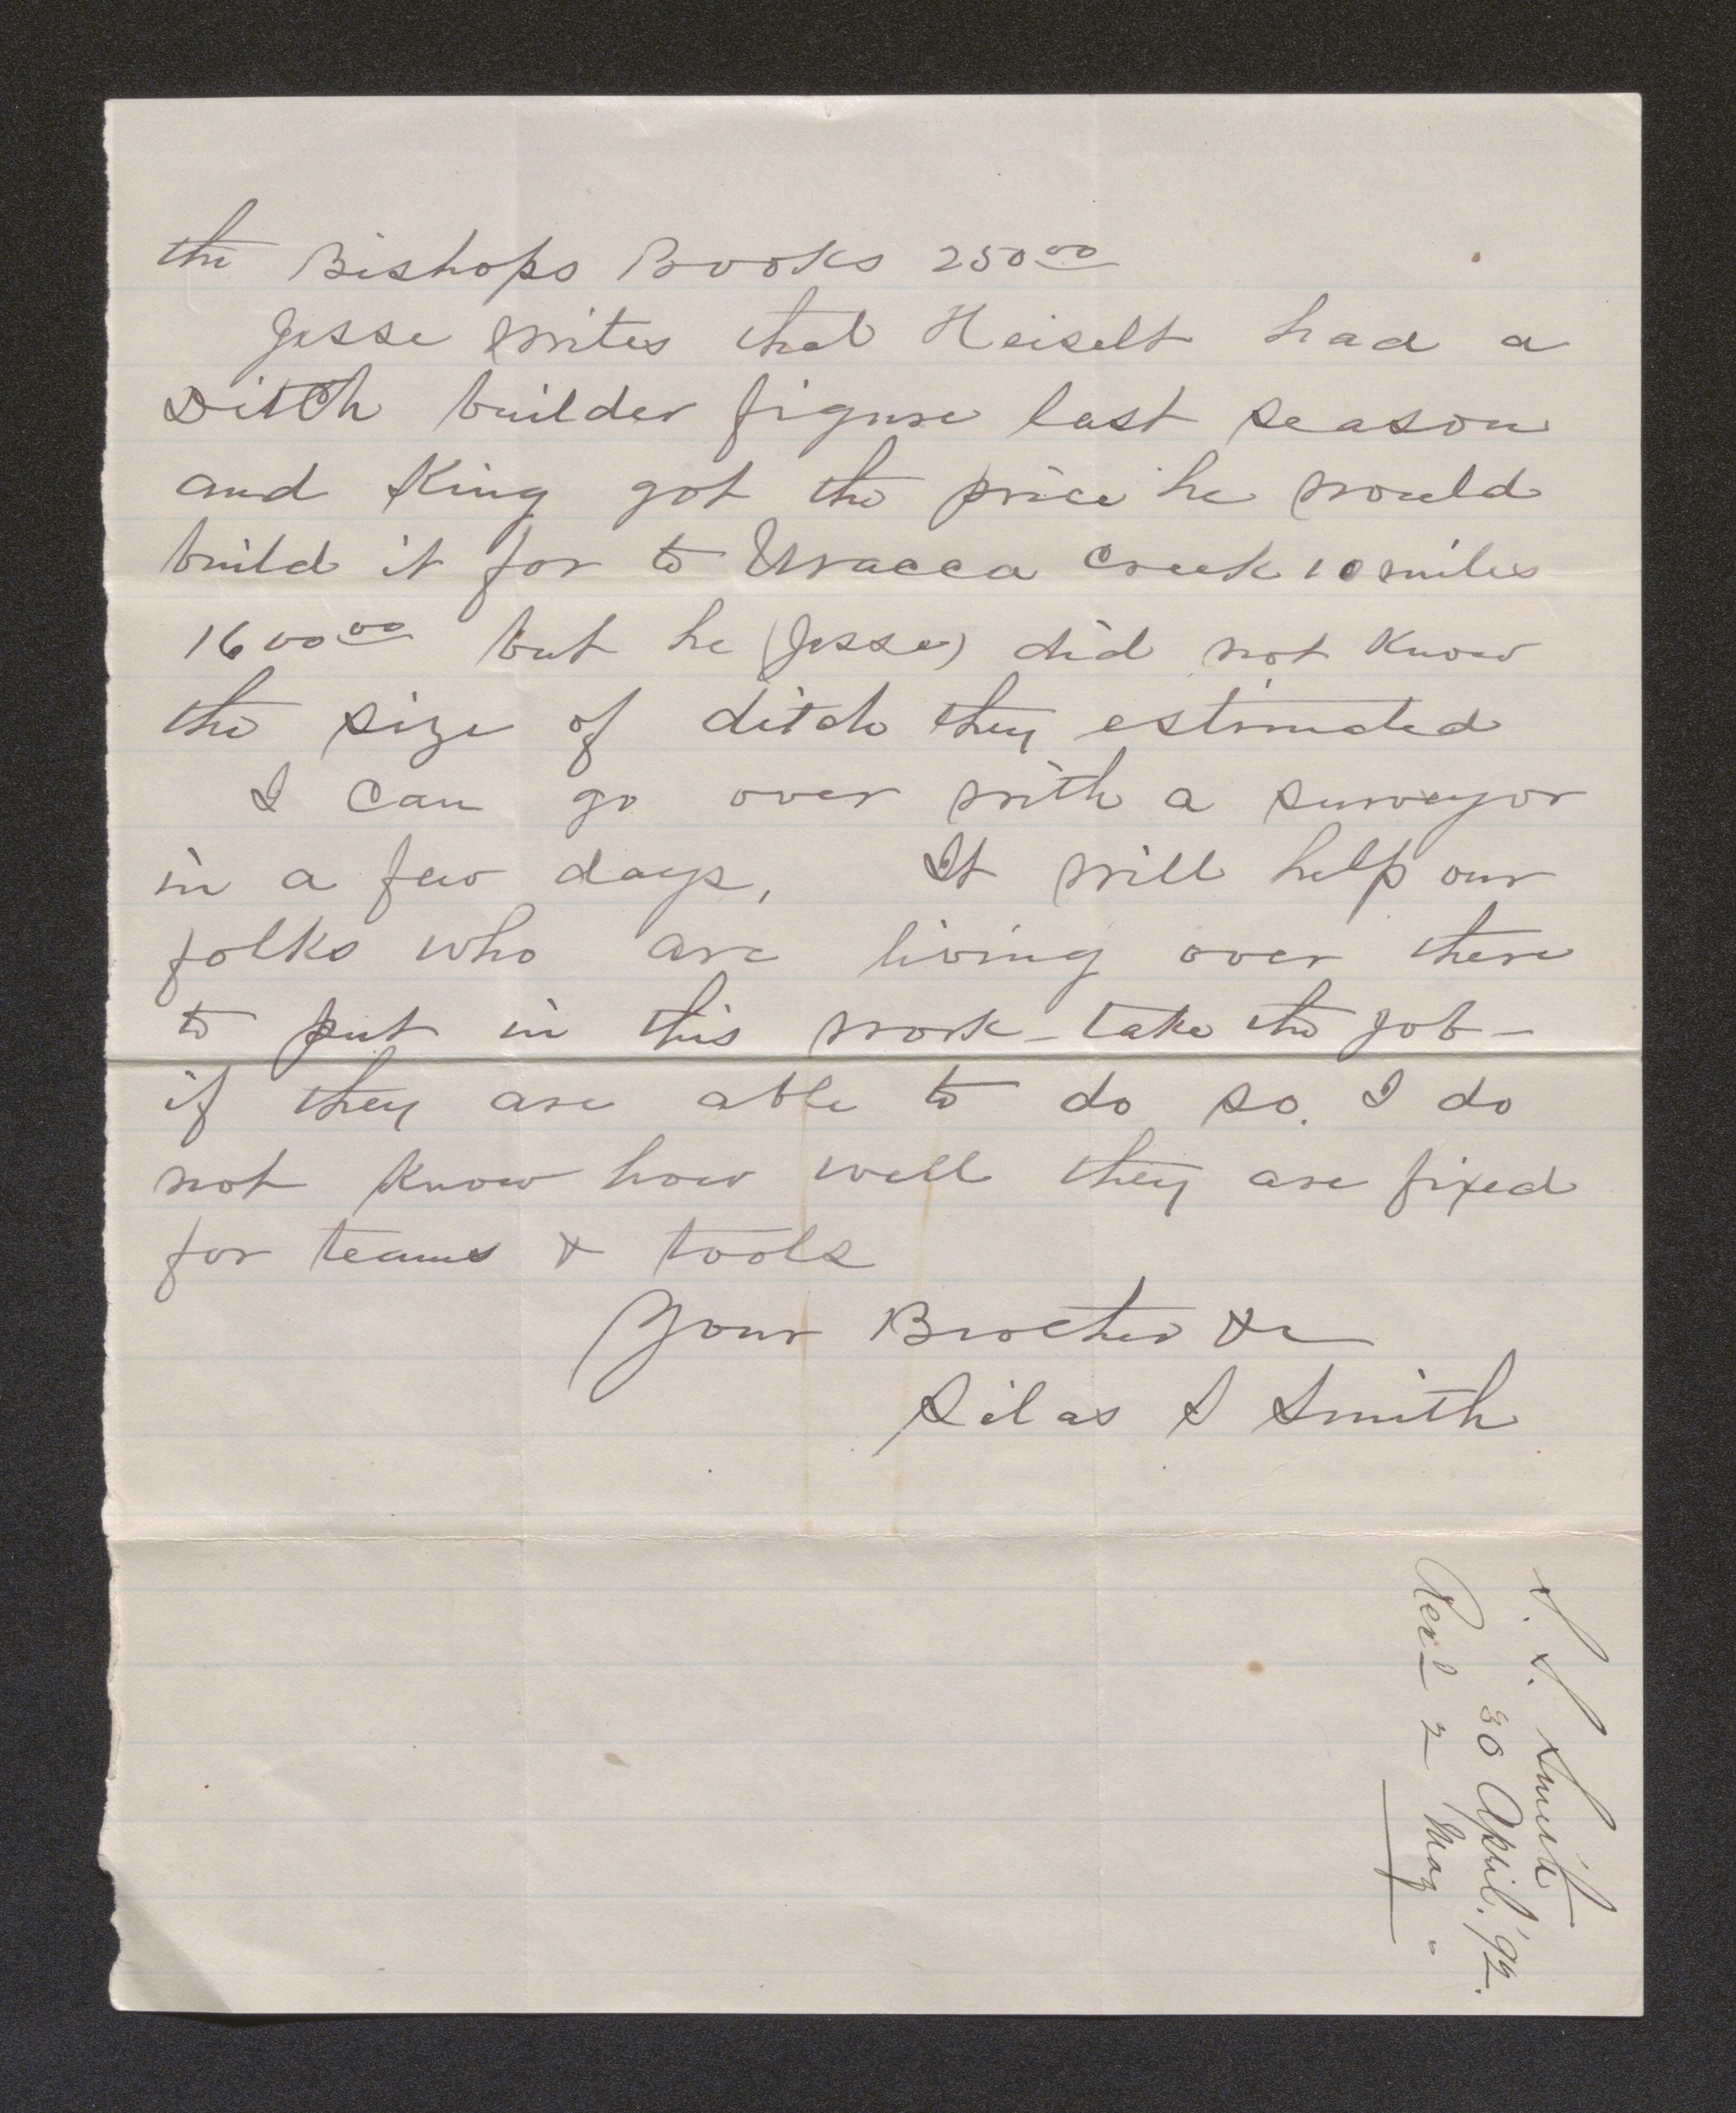 the Bishops Books 250 00
Jesse writes that Heiselt had a
Ditch builder figure last season
and King got the price he would
build it for to Uracca Creek 10 miles
1600 00 but he (Jesse) did not Know
the size of ditch they estimated
I can go over with a surveyor
in a few days, It will help our
folks who are living over there
to put in this work - take the job -
if they are able to do so. I do
not Know how well they are fixed
for teams & tools
Your Brother &c
Silas S Smith
S. S. Smith
30 April. '92.
Recd 2 May "